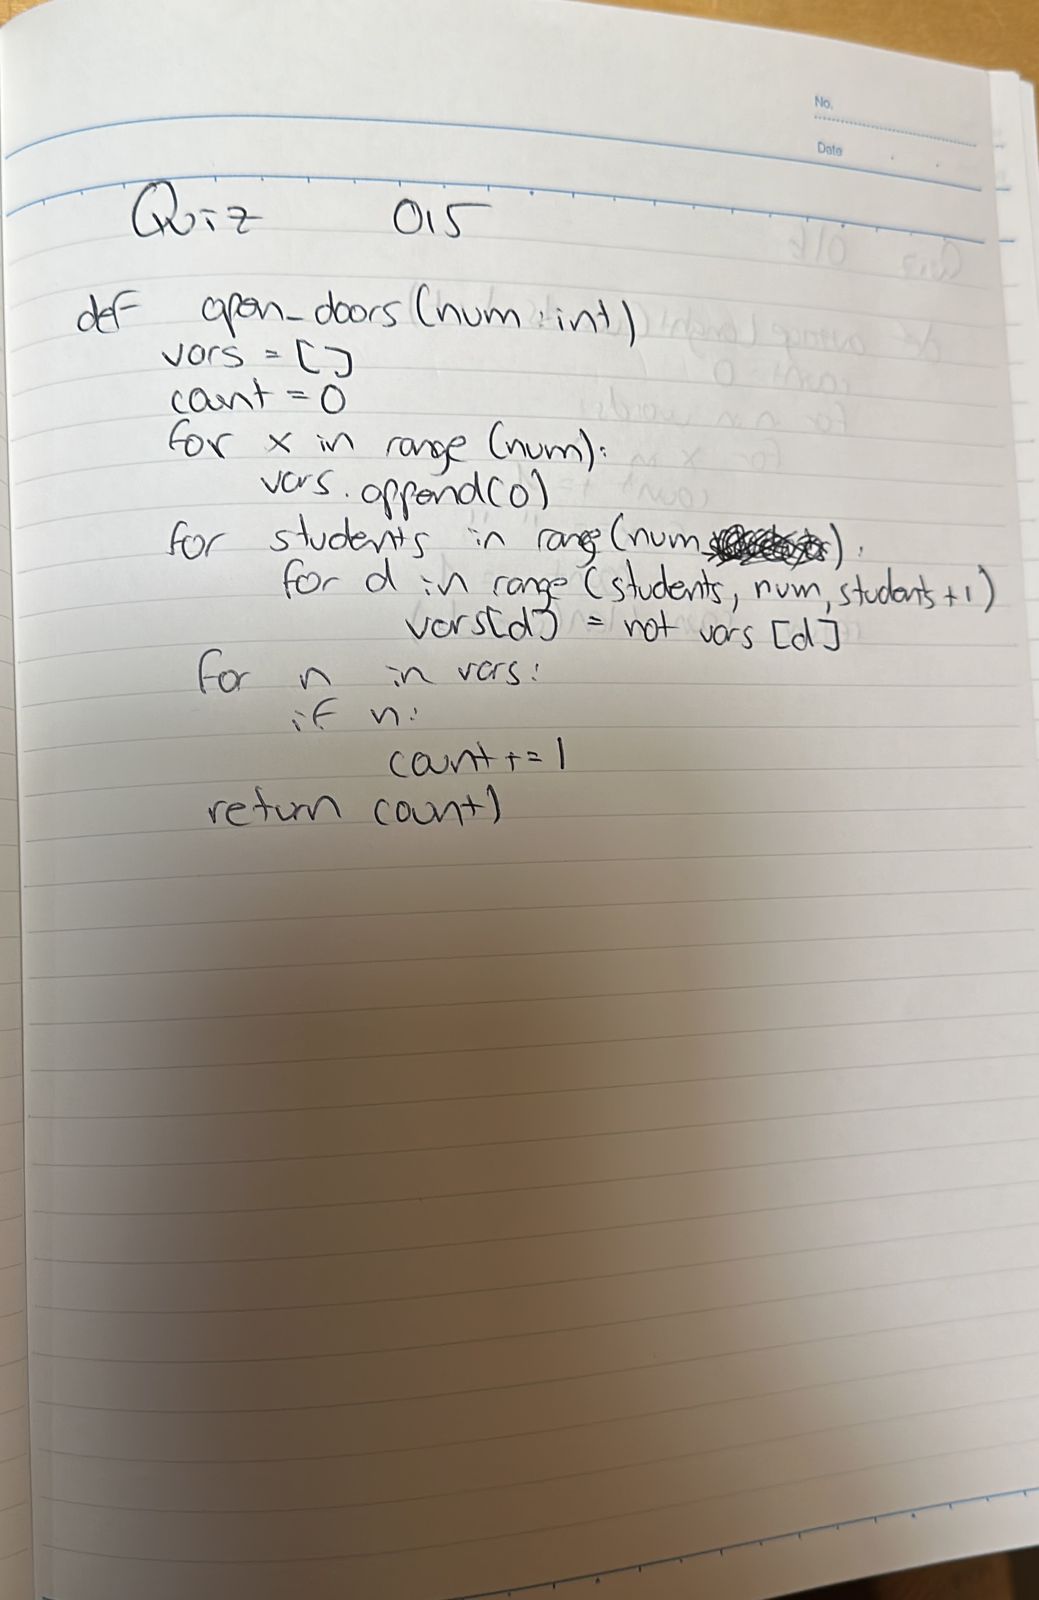 No.
Date
Quiz 015
def open_doors(num:int)
vars = []
count = 0
for x in range (num):
vars.append(0)
for students in range(num):
for d in range (students, num, students+1)
vars[d] = not vars [d]
for n in vars:
if n:
count+=1
return count)